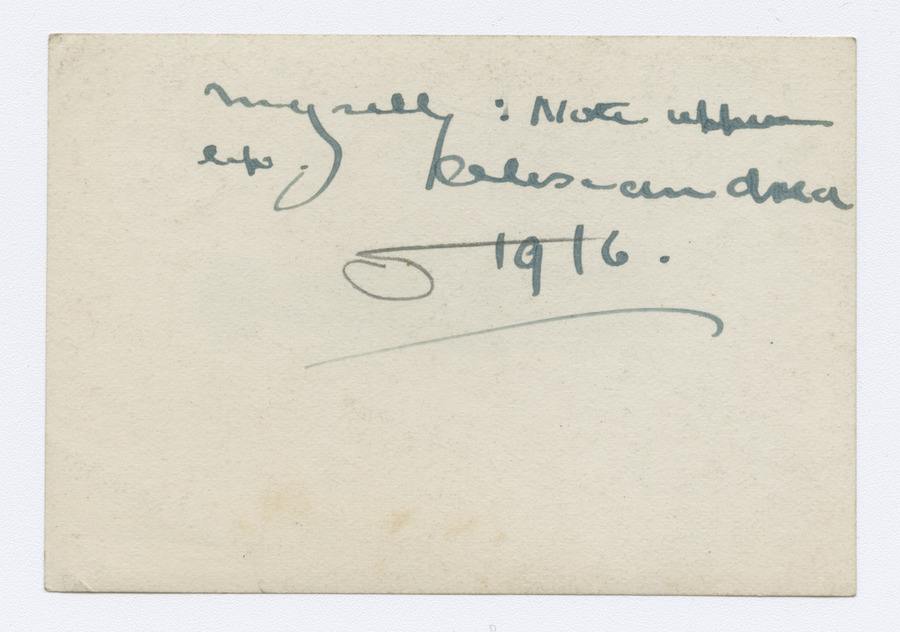 Myself : Note upper
lip. Alexandria
1916.